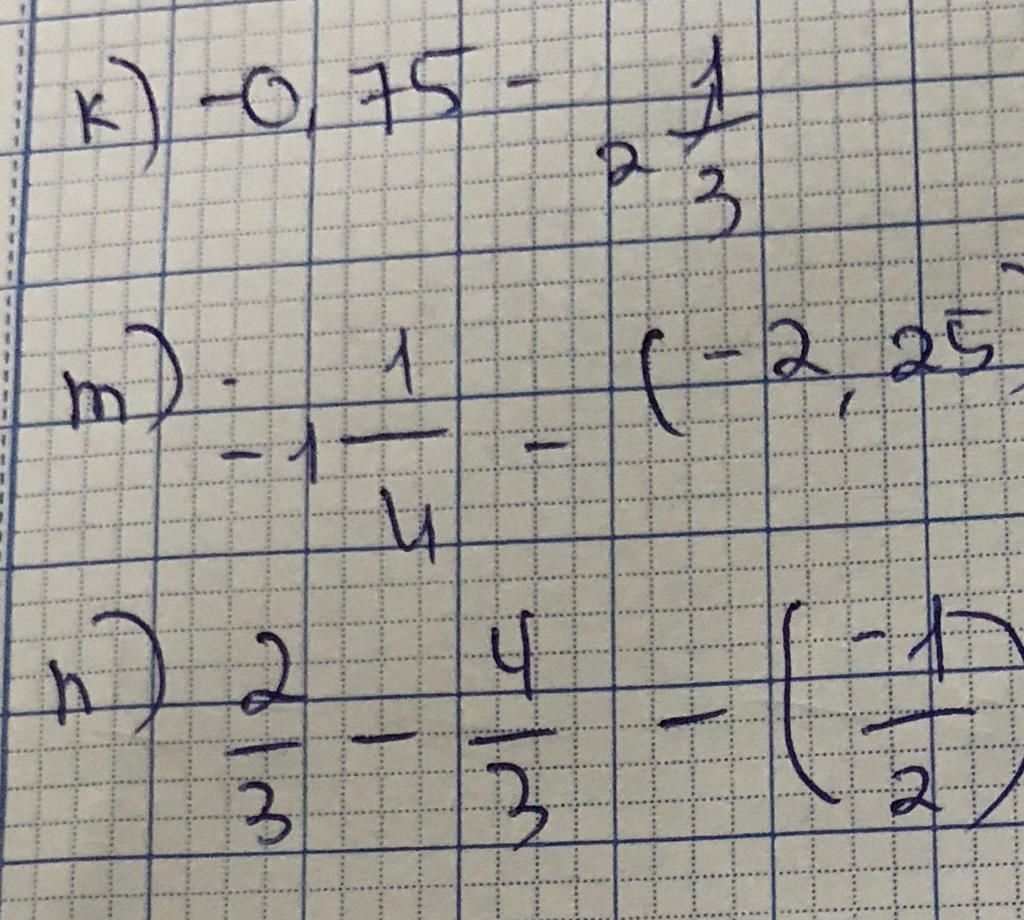 k) -0,75 - 2 1/3
m) -1 1/4 - (-2,25)
n) 2/3 - 4/3 - (-1/2)